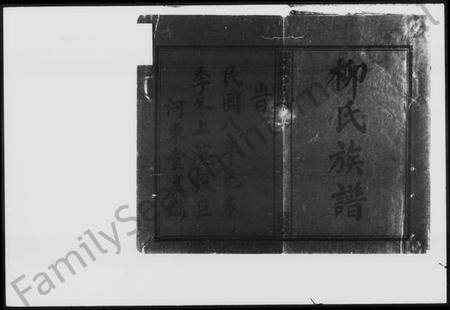 柳氏族譜
民國八年己未
季冬上浣穀旦
河東堂
FamilySearch International